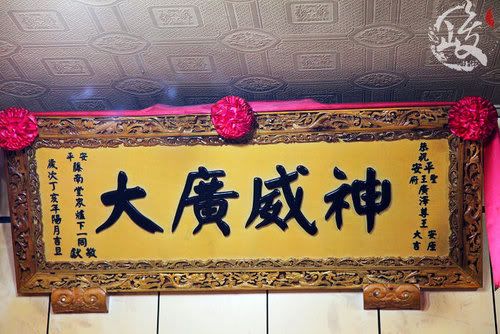 恭祝
平安府
聖王
廣澤尊王
安座
大吉
神威廣大
平安
藤南堂眾爐下一同
敬獻
歲次丁亥年陽月吉旦